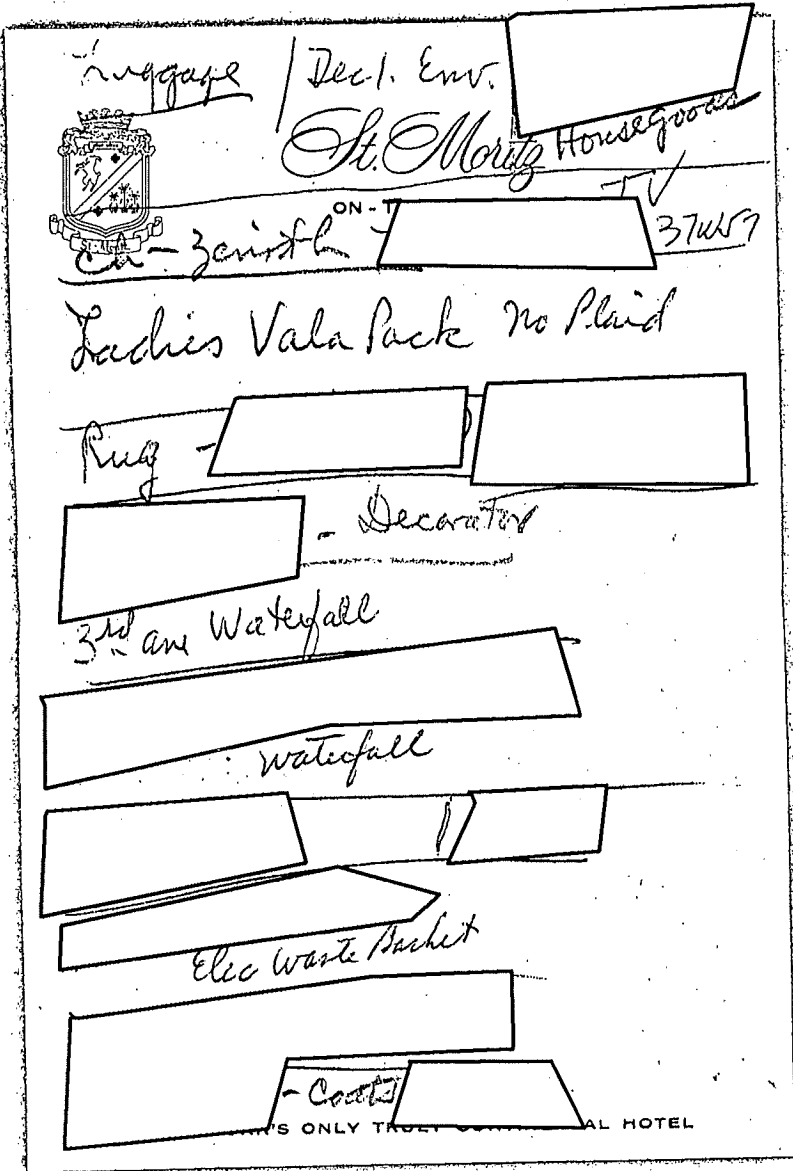 Luggage / Decl. Env.
St. Moritz Housegoods
TV
ON-T
Zenith - 
Ladies Vala Pack No Plaid
Rug -
- Decorator
3rd ave Waterfall
Waterfall
Elec Waste Basket
- Coats
'S ONLY TRULY AL HOTEL